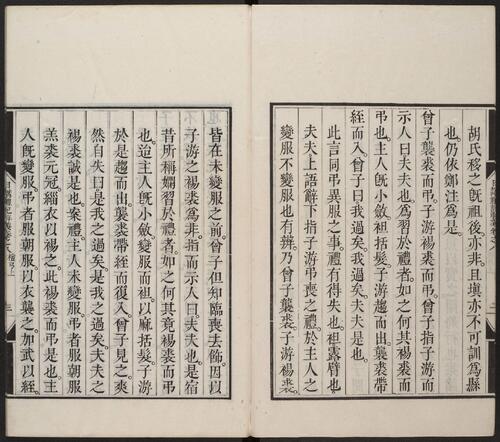 胡氏移之旣祖後亦非。且塡亦不可訓爲縣
也仍依鄭注爲是。
曾子襲裘而弔子游裼裘而弔。曾子指子游而
示人曰夫夫也爲習於禮者如之何其裼裘而
弔也。主人旣小斂袒括髮子游趨而出。襲裘帶
絰而入。曾子曰我過矣我過矣夫夫是也。
此言同弔異服之事。禮有得失也。袒露臂也。
夫夫上語辭下指子游弔喪之禮於主人之
變服不變服也有辨。乃曾子襲裘子游裼裘。
皆在未變服之前。曾子但知臨喪去飾。因以
子游之裼裘爲非指而示人曰。夫夫也是宿
昔所稱嫻習於禮者。如之何其竟裼裘而弔
也。迨主人旣小斂變服而袒以麻括髮子游
於是趨而出。襲裘帶絰而復入。曾子見之。爽
然自失曰是我之過矣是我之過矣。夫夫之
裼裘誠是也案禮主人未變服弔者服朝服
羔裘元冠緇衣以裼之此裼裘而弔是也主
人旣變服。弔者服朝服。以衣襲之。加武以絰。